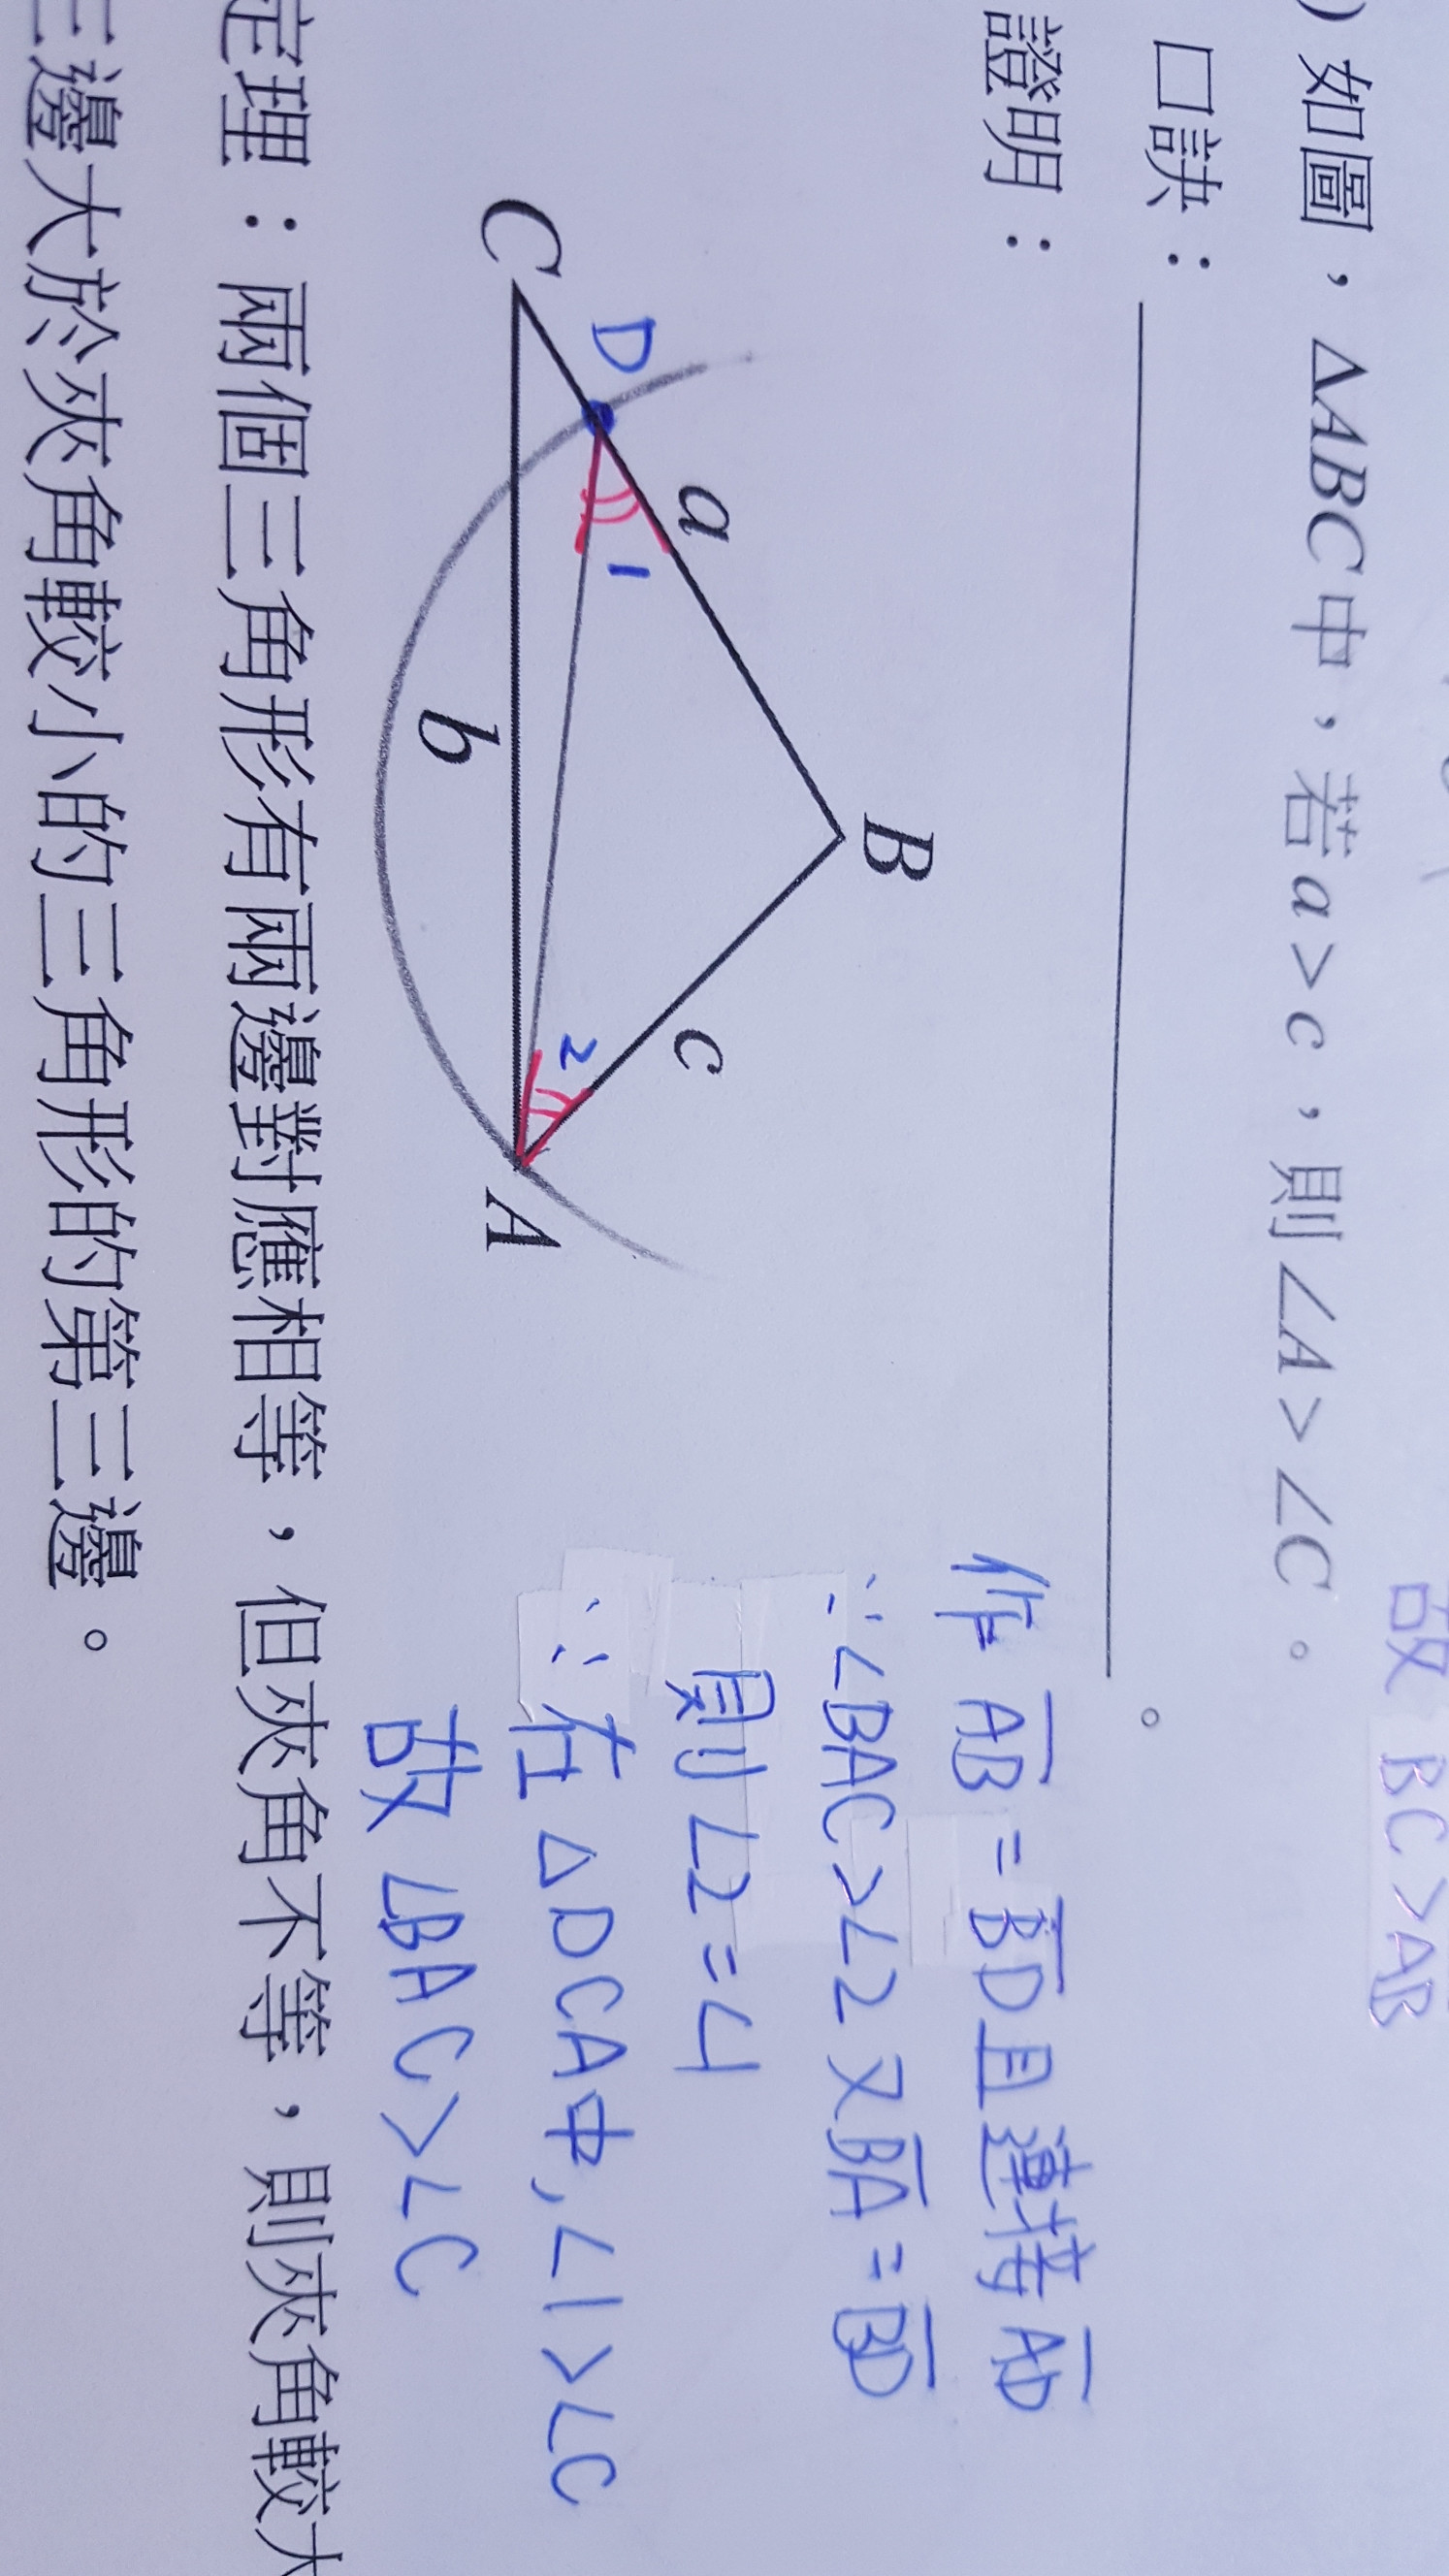 故 BC>AB
) 如圖，ΔABC中，若a>c，則∠A>∠C。
口訣：。
證明：
作 AB=BD且連接AD
∵∠BAC>∠2 又BA=BD
則∠2=∠1
∵在△DCA中,∠1>∠C
故∠BAC>∠C
B
a
c
D
1
2
C
b
A
定理：兩個三角形有兩邊對應相等，但夾角不等，則夾角較大
三邊大於夾角較小的三角形的第三邊。